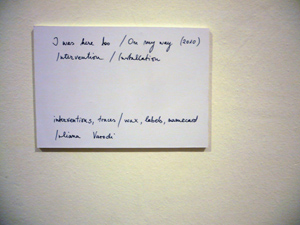 I was here too / On my way (2010)
Intervention / Installation
interventions, traces / wax, labels, namecard
Iuliana Varodi